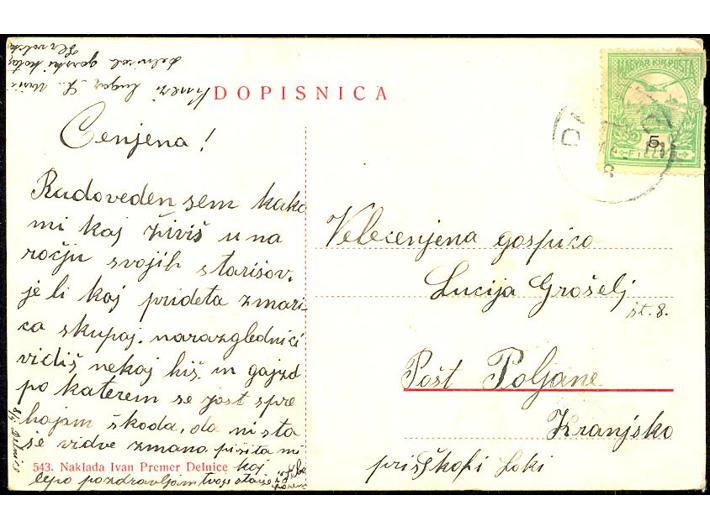 DOPISNICA
Cenjena!
Radoveden sem kako
mi kaj živiš u na
ročju svojih starišov,
je li kaj prideta z mari
co skupaj. na razglednici
vidiš nekoj hiš in gajzd
po katerem se jast spre
hajam škoda, da ni sta
se vidve z mano pišita mi
kaj
lepo pozdravljam tvoje stariše
543. Naklada Ivan Premer Delnice
MAGYAR KIR. POSTA
5
FILLÉR
Velecenjena gospica
Lucija Grošelj
št. 8.
Pošt Poljane
Kranjsko
pri Škofi Loki